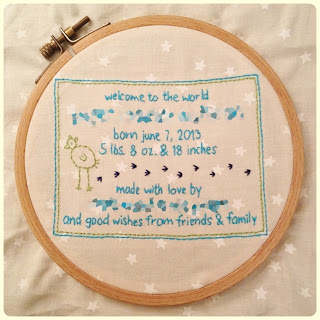 welcome to the world
born june 7, 2013
5 lbs. 8 oz. & 18 inches
made with love by
and good wishes from friends & family